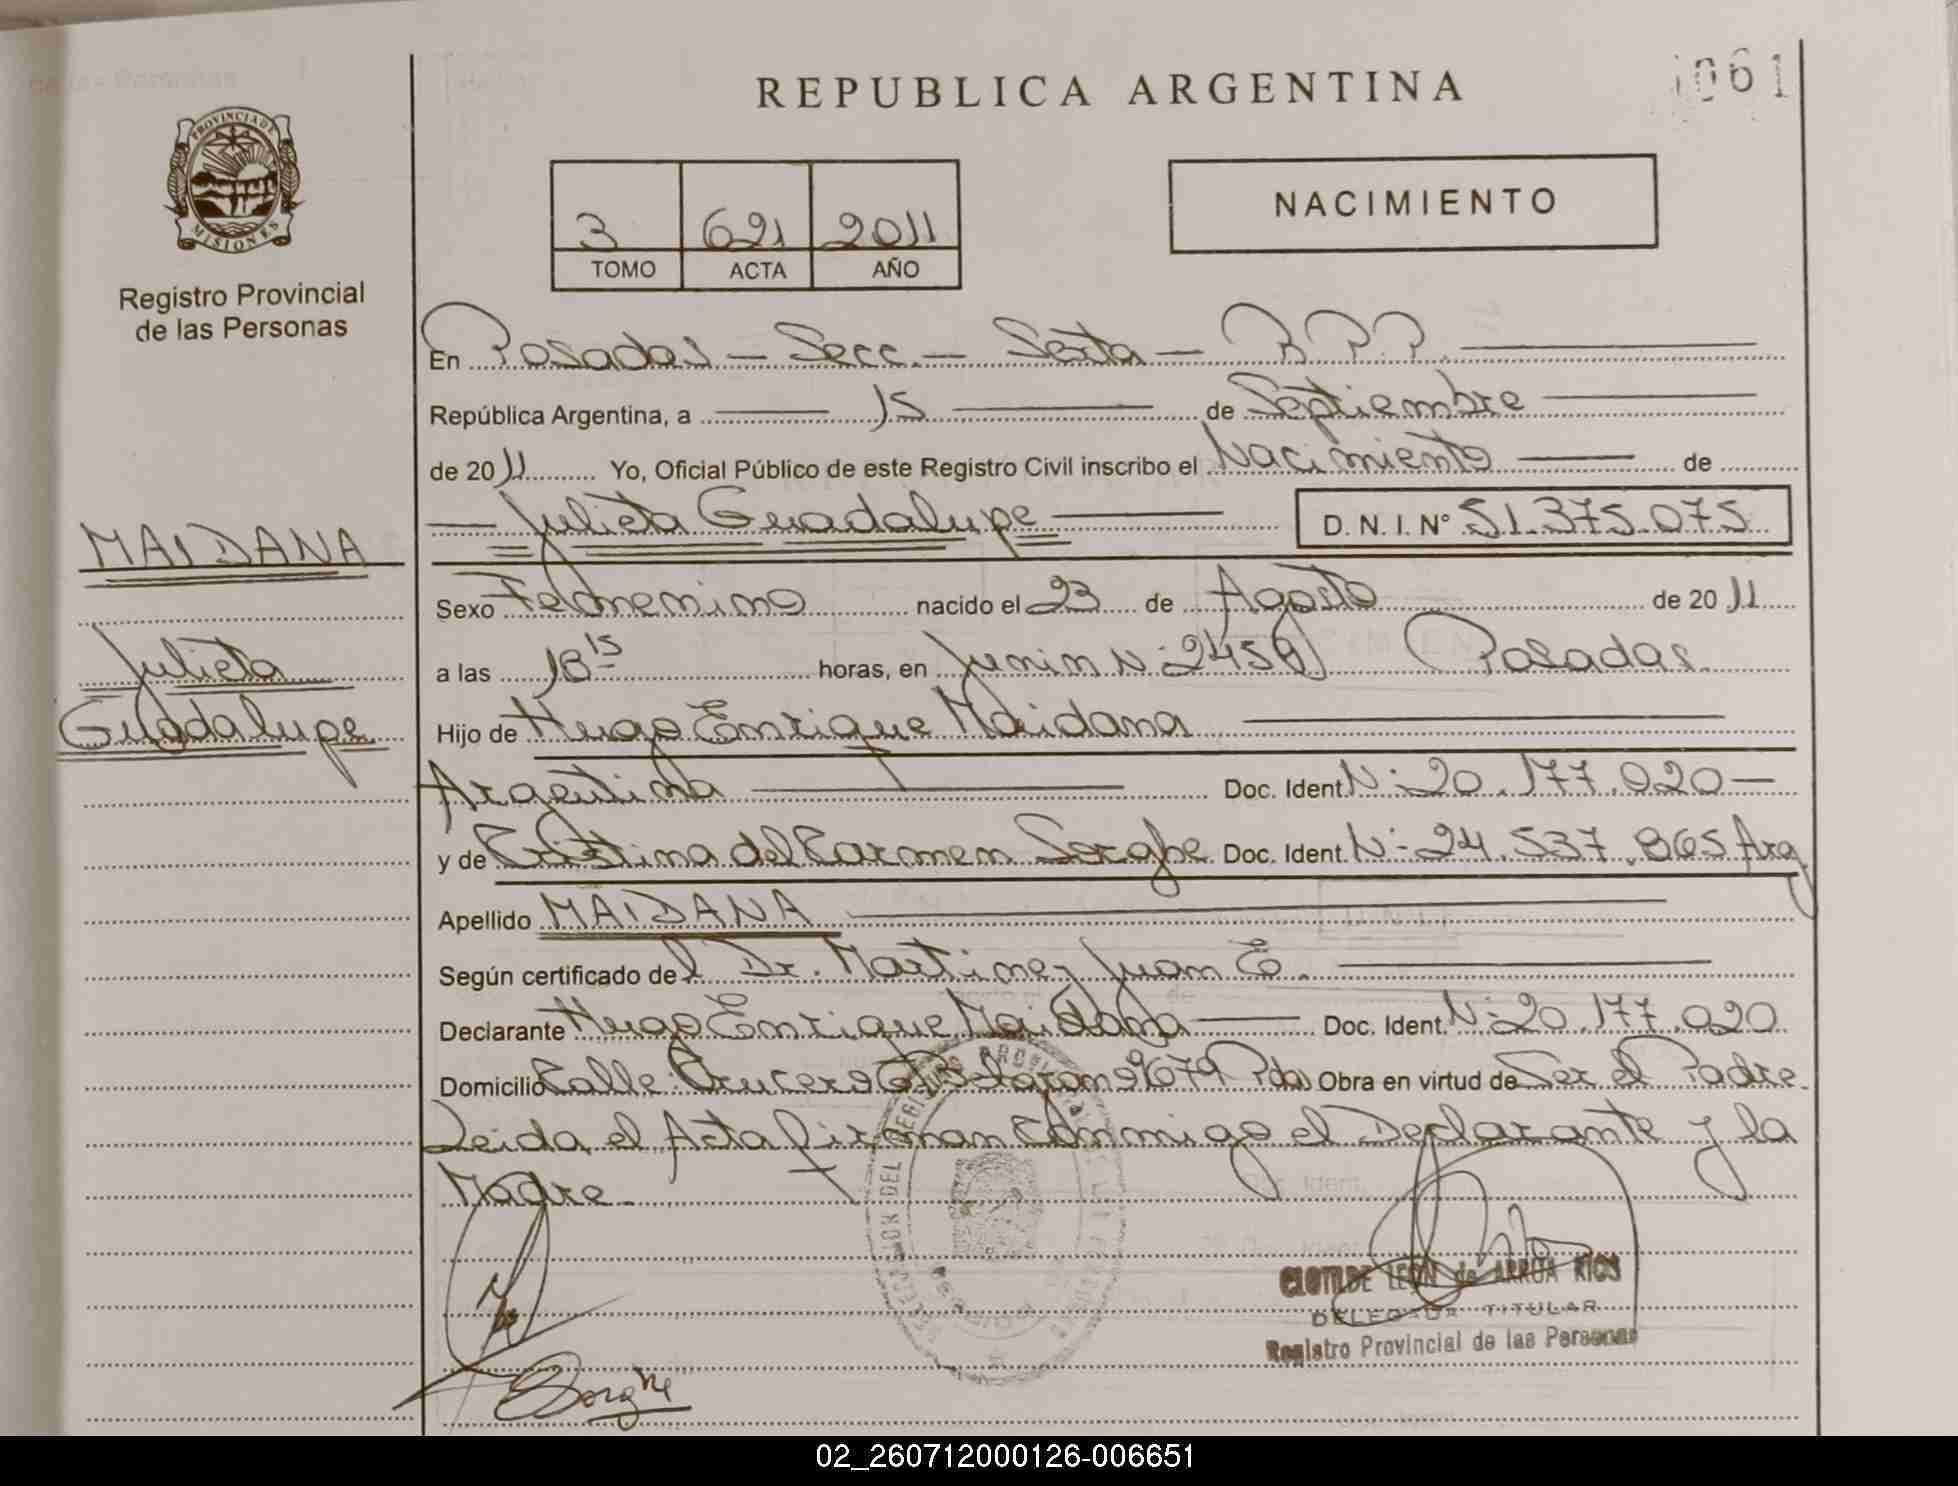 REPUBLICA ARGENTINA
1061
PROVINCIA DE
MISIONES
Registro Provincial
de las Personas
3 621 2011
TOMO ACTA AÑO
NACIMIENTO
En Posadas - Secc. - Sexta - R.P.P.
República Argentina, a 15 de Septiembre
de 2011 Yo, Oficial Público de este Registro Civil inscribo el Nacimiento de
Julieta Guadalupe D.N.I. N° 51.375.075
MAIDANA
Julieta
Guadalupe
Sexo Femenino nacido el 23 de Agosto de 2011
a las 18 15 horas, en Junin N: 2458 Posadas.
Hijo de Hugo Enrique Maidana
Argentina Doc. Ident N: 20.177.020
y de Cristina del Carmen Doc. Ident. N: 24.537.865 Arg
Apellido MAIDANA
Según certificado del Dr. Martinez Juan E.
Declarante Hugo Enrique Maidana Doc. Ident. N: 20.177.020
Domicilio Calle Crucero Pdas Obra en virtud de Ser el Padre.
Leida el Acta firman conmigo el Declarante y la
Madre.
CLOTILDE LEON de ARRUA RIOS
DELEGADA TITULAR
Registro Provincial de las Personas
02_260712000126-006651